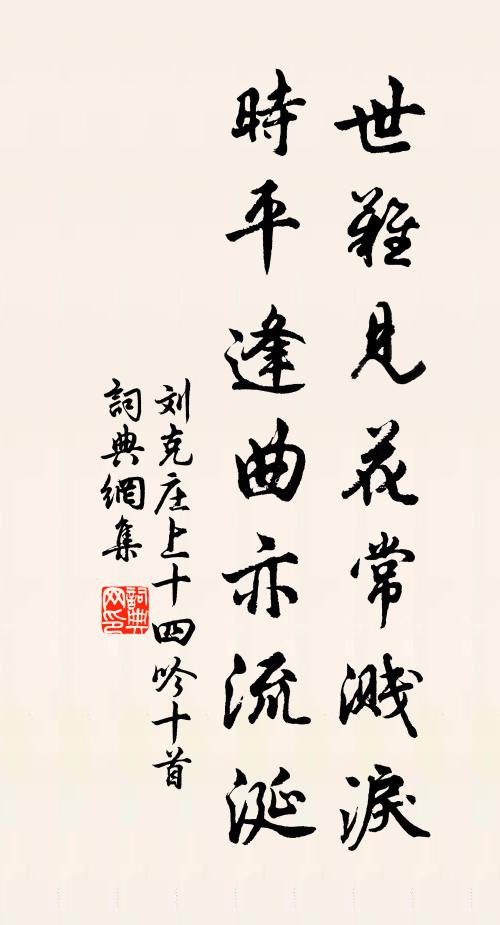 世難見花常濺淚
時平逢曲亦流涎
刘克庄上十四吟十首
詞典網集
詞典网印